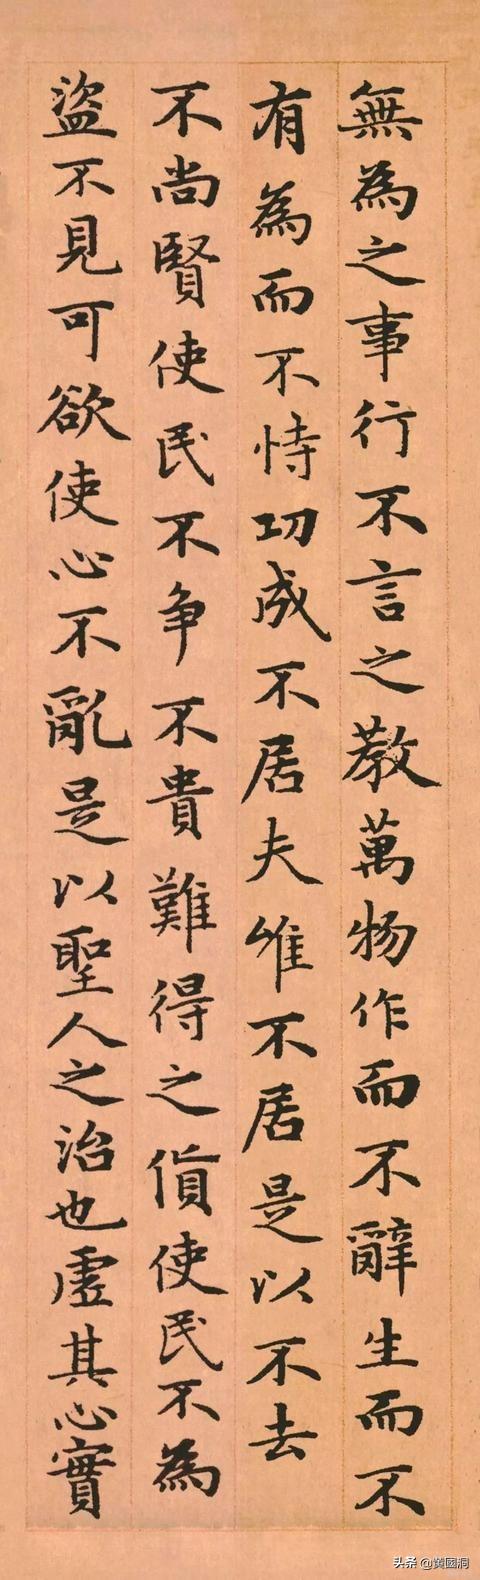 無為之事行不言之教萬物作而不辭生而不
有為而不恃功成不居夫唯不居是以不去
不尚賢使民不争不貴難得之貨使民不為
盜不見可欲使心不亂是以聖人之治也虛其心實
头条 @黄國洞